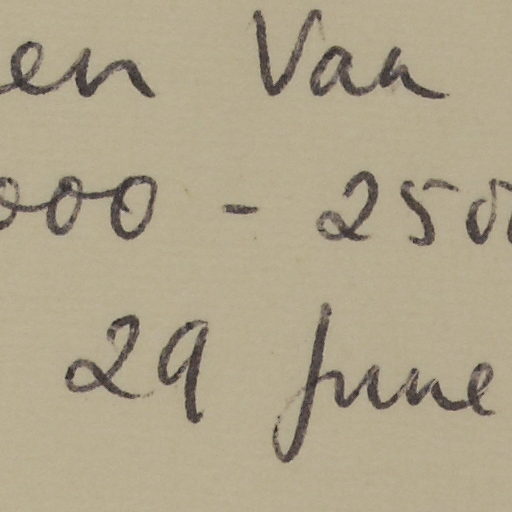 en Van
000 - 250
29 June